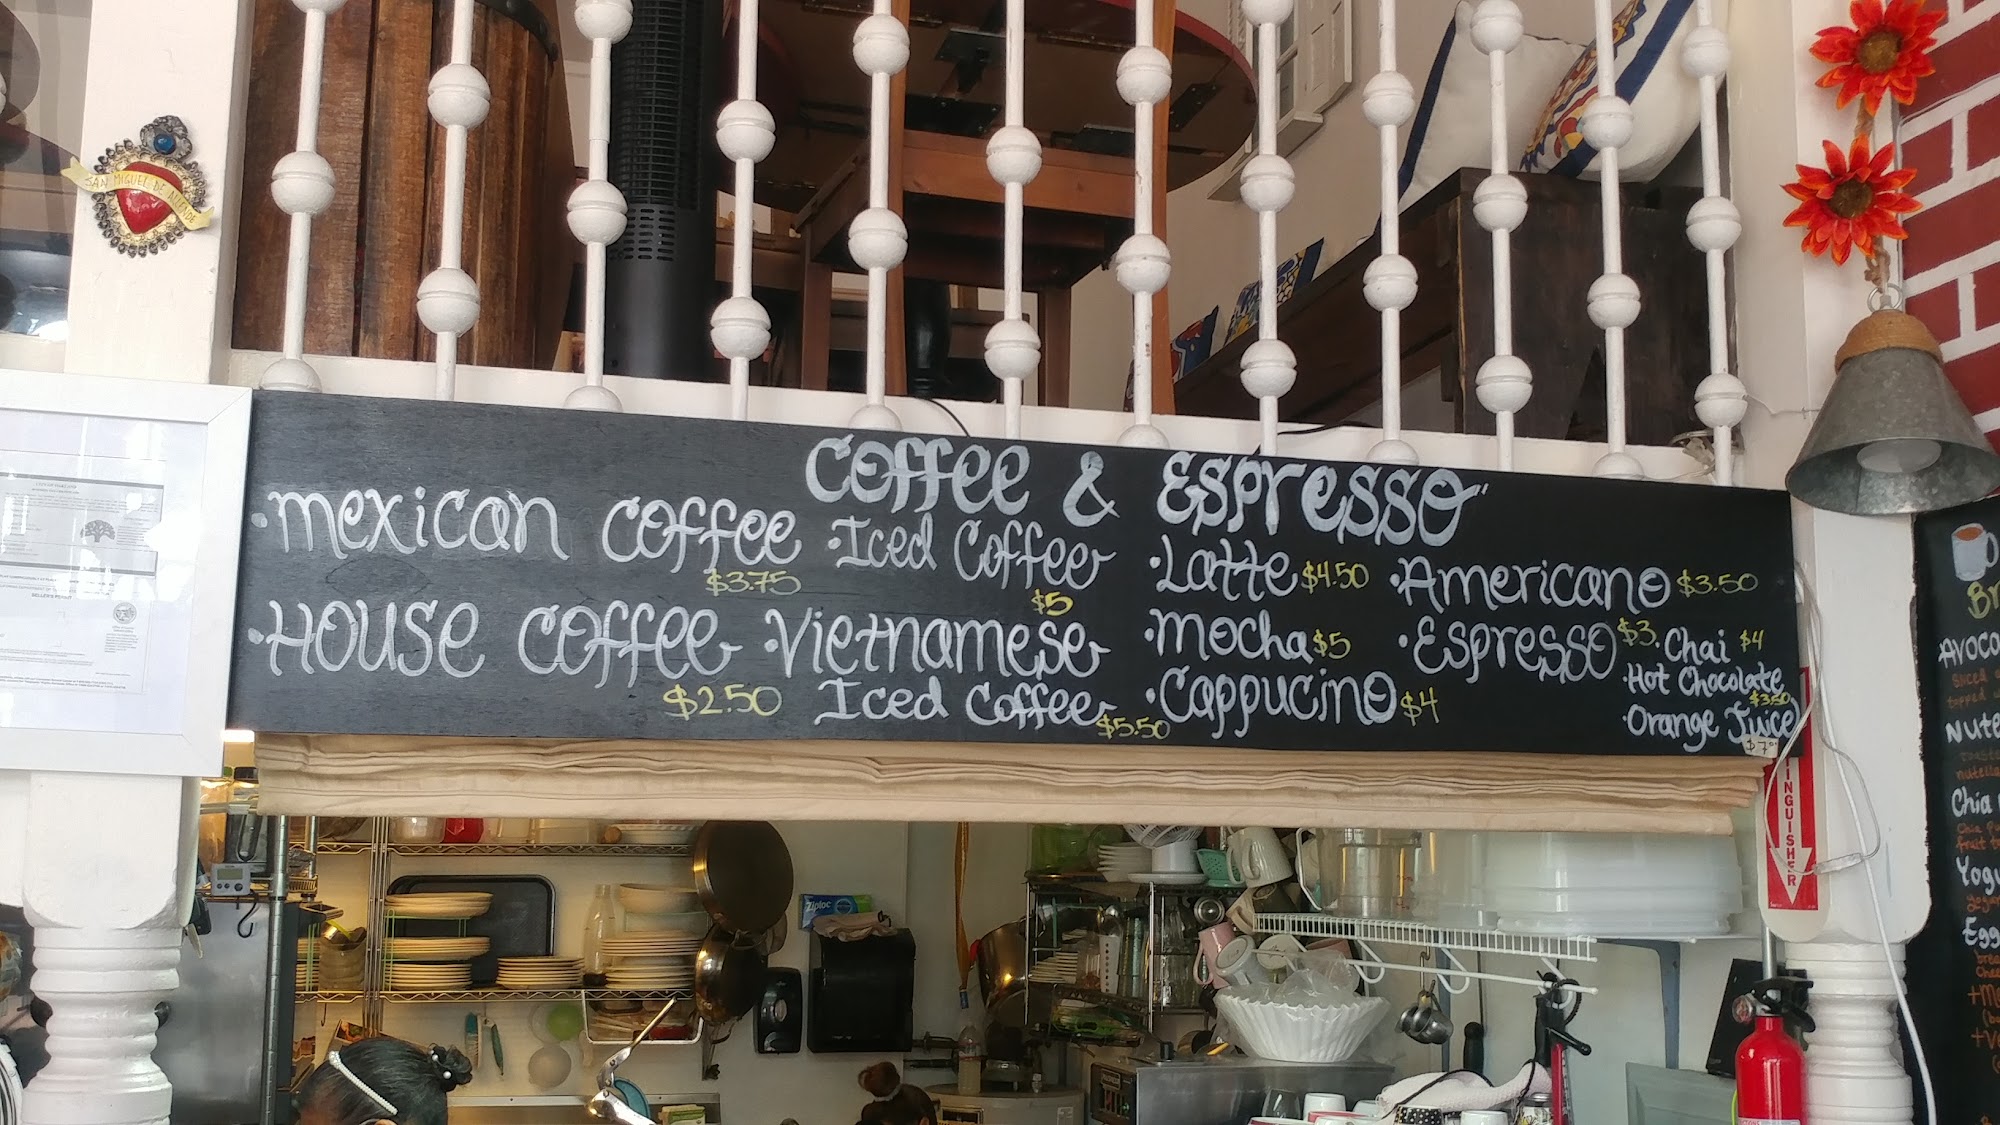 SAN MIGUEL DE ALLENDE
Coffee & Espresso
·Mexican Coffee
$3.75
·House Coffee
$2.50
·Iced Coffee
$5
·Vietnamese
Iced Coffee
$5.50
·Latte $4.50
·Mocha $5
·Cappucino $4
·Americano $3.50
·Espresso $3
·Chai $4
·Hot Chocolate
$3.50
·Orange Juice
$7
SELLER'S PERMIT
Ziploc
INGUISHER
Br
Avoco
Sliced
topped
Nute
nutella
Chia
Chia Pu
fruit
Yogu
Egg